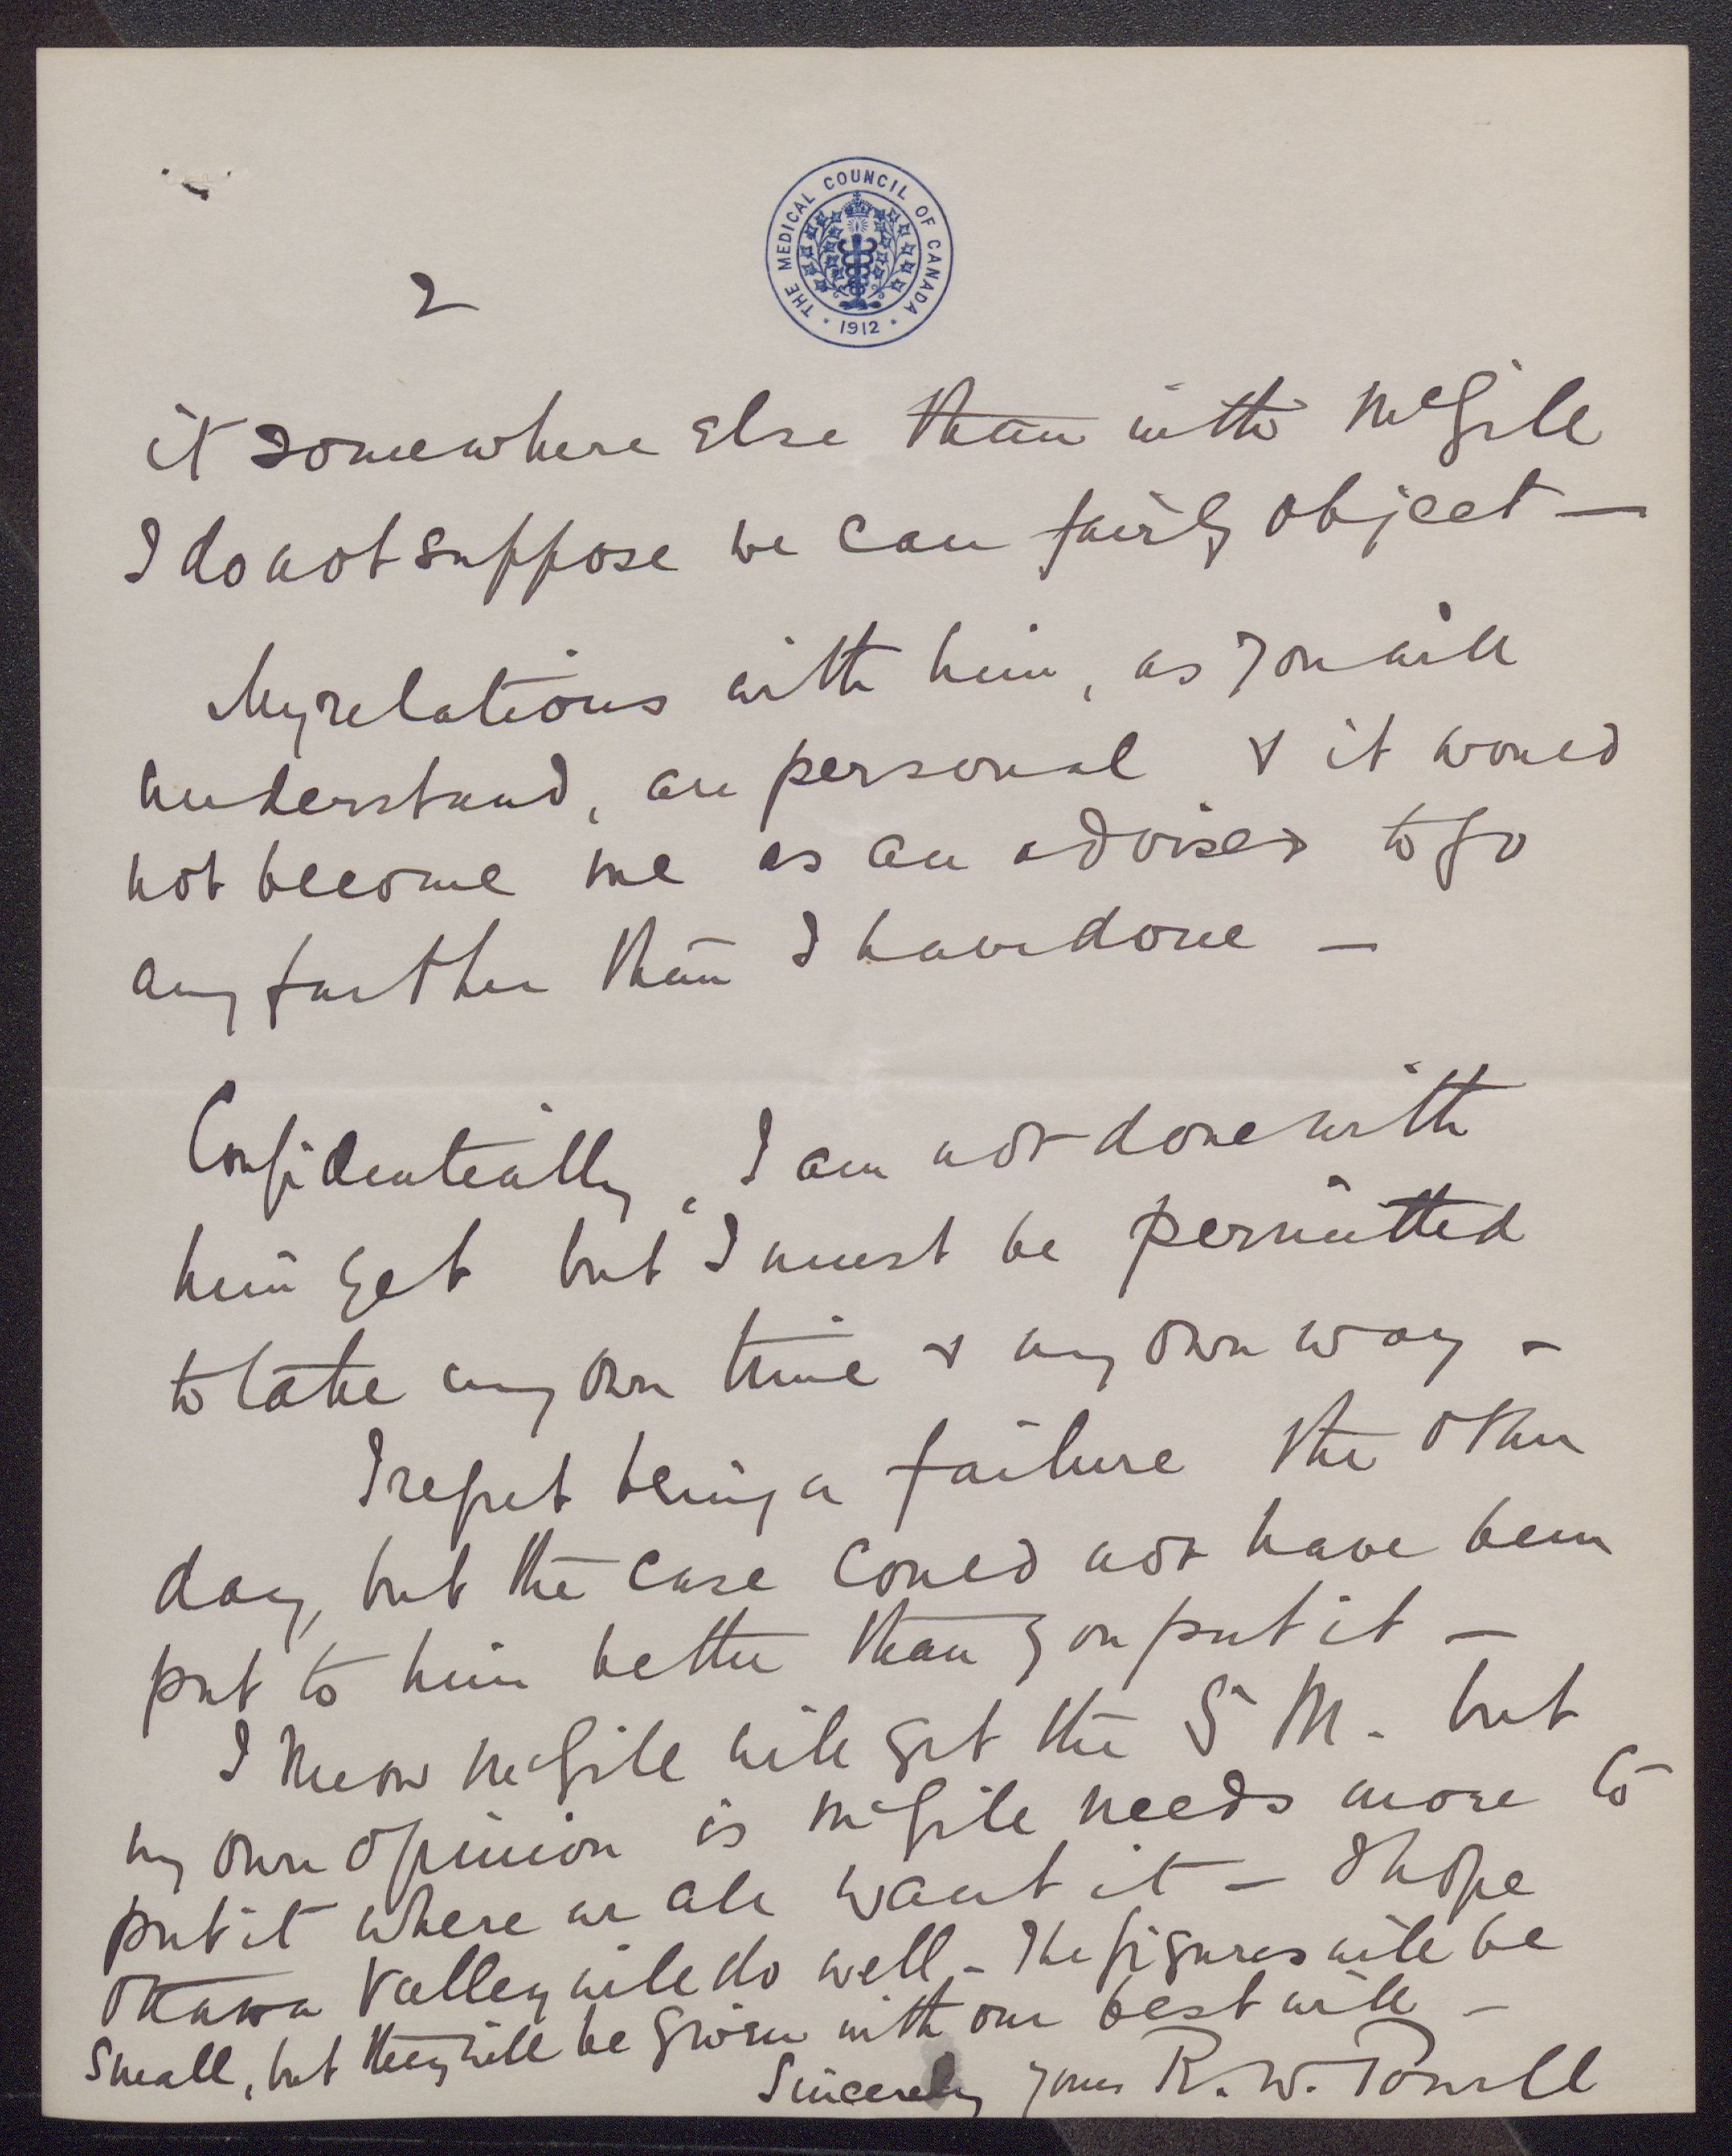 THE MEDICAL COUNCIL OF CANADA
· 1912 ·
2
it somewhere else than with McGill
I do not suppose we can fairly object —
My relations with him, as you will
understand, are personal & it would
not become me as an adviser to go
any further than I have done —
Confidentially, I am not done with
him yet but I must be permitted
to take my own time & my own way -
I regret being a failure the other
day, but the case could not have been
put to him better than you put it —
I know McGill will get the 5 M. but
my own opinion is McGill needs more to
put it where we all want it — I hope
Ottawa Valley will do well - The figures will be
small, but they will be given with our best will -
Sincerely yours R. W. Powell